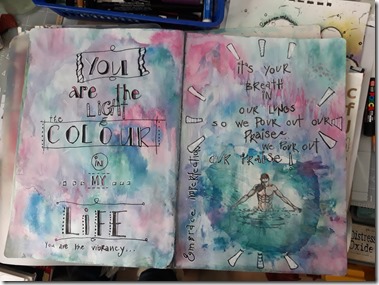 YOU
are the
LIGHT
&
the
COLOUR
in
MY
LIFE
You are the vibrancy...
it's YOUR
BREATH
IN
OUR LUNGS
so we POUR OUT OUR
PRAISE
WE POUR OUT
OUR PRAISE
Embrace imperfection
Distress
Oxide